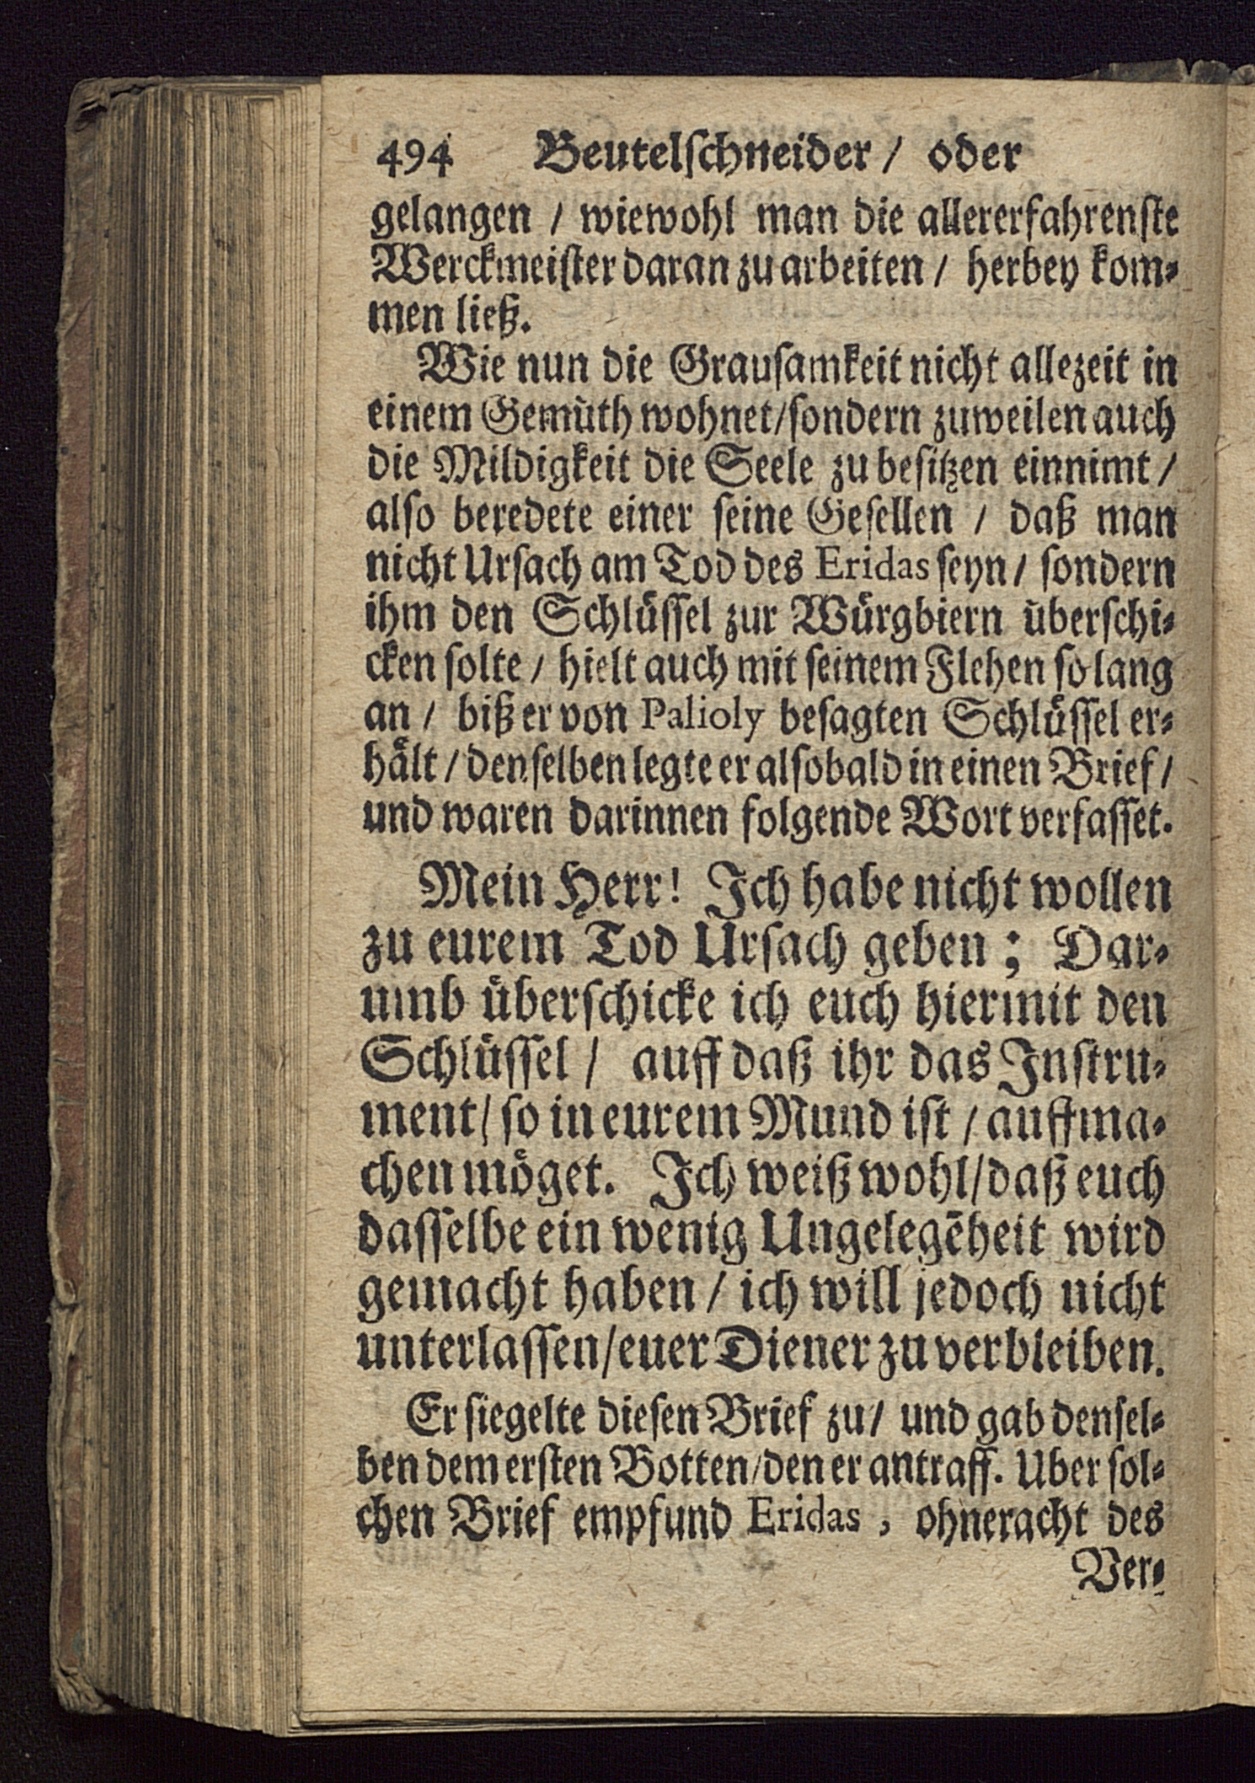 494 Beutelſchneider / oder
gelangen / wiewohl man die allererfahrenſte
Werckmeiſter daran zu arbeiten / herbey kom⸗
men ließ.
Wie nun die Grauſamkeit nicht allezeit in
einem Gemuͤth wohnet/ſondern zuweilen auch
die Mildigkeit die Seele zu beſitzen einnimt /
alſo beredete einer ſeine Geſellen / daß man
nicht Urſach am Tod des Eridas ſeyn / ſondern
ihm den Schluͤſſel zur Wuͤrgbiern uͤberſchi⸗
cken ſolte / hielt auch mit ſeinem Flehen ſo lang
an / biß er von Palioly beſagten Schluͤſſel er⸗
haͤlt / denſelben legte er alſobald in einen Brief /
und waren darinnen folgende Wort verfaſſet.
Mein Herr! Ich habe nicht wollen
zu eurem Tod Urſach geben ; Dar⸗
umb uͤberſchicke ich euch hiermit den
Schluͤſſel / auff daß ihr das Inſtru⸗
ment / ſo in eurem Mund iſt / auffma⸗
chen moͤget. Ich weiß wohl/daß euch
daſſelbe ein wenig Ungelegēheit wird
gemacht haben / ich will jedoch nicht
unterlaſſen/euer Diener zu verbleiben.
Er ſiegelte dieſen Brief zu / und gab denſel⸗
ben dem erſten Botten/den er antraff. Uber ſol⸗
chen Brief empfund Eridas , ohneracht des
Ver⸗